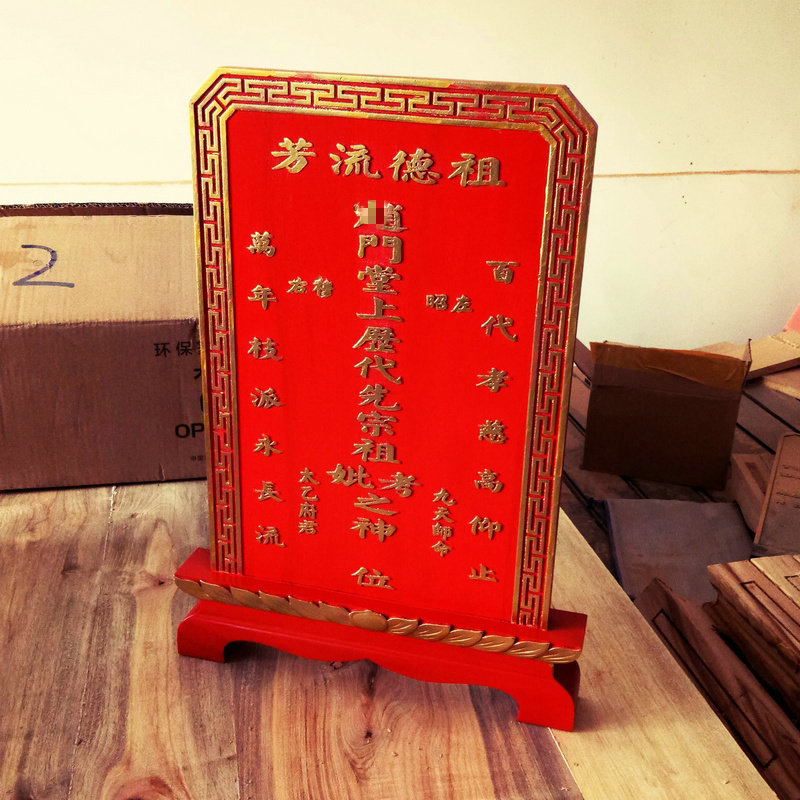 祖德流芳
百代孝慈高仰止
左昭
九天師命
門堂上歷代先宗祖考妣之神位
右穆
太乙府君
萬年枝派永長流
2
环保
OP